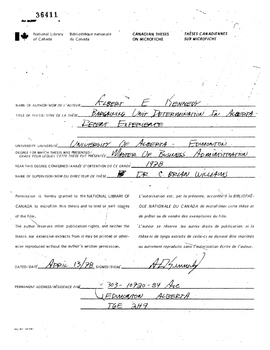 36411
National Library of Canada
Bibliothèque nationale du Canada
CANADIAN THESES ON MICROFICHE
THÈSES CANADIENNES SUR MICROFICHE
NAME OF AUTHOR/NOM DE L'AUTEUR ALBERT E KENNEDY
TITLE OF THESIS/TITRE DE LA THÈSE BARGAINING UNIT DETERMINATION IN ALBERTA-
RECENT EXPERIENCE
UNIVERSITY/UNIVERSITÉ UNIVERSITY OF ALBERTA - EDMONTON
DEGREE FOR WHICH THESIS WAS PRESENTED/
GRADE POUR LEQUEL CETTE THÈSE FUT PRÉSENTÉE MASTER OF BUSINESS ADMINISTRATION
YEAR THIS DEGREE CONFERRED/ANNÉE D'OBTENTION DE CE GRADE 1978
NAME OF SUPERVISOR/NOM DU DIRECTEUR DE THÈSE DR C. BRIAN WILLIAMS
Permission is hereby granted to the NATIONAL LIBRARY OF
CANADA to microfilm this thesis and to lend or sell copies of
the film.
The author reserves other publication rights, and neither the
thesis nor extensive extracts from it may be printed or other-
wise reproduced without the author's written permission.
L'autorisation est, par la présente, accordée à la BIBLIOTHÈ-
QUE NATIONALE DU CANADA de microfilmer cette thèse et
de prêter ou de vendre des exemplaires du film.
L'auteur se réserve les autres droits de publication; ni la
thèse ni de longs extraits de celle-ci ne doivent être imprimés
ou autrement reproduits sans l'autorisation écrite de l'auteur.
DATED/DATÉ APRIL 13/78 SIGNED/SIGNÉ AE Kennedy
PERMANENT ADDRESS/RÉSIDENCE FIXE 303-10730-84 AVE
EDMONTON ALBERTA
T6E 2H9